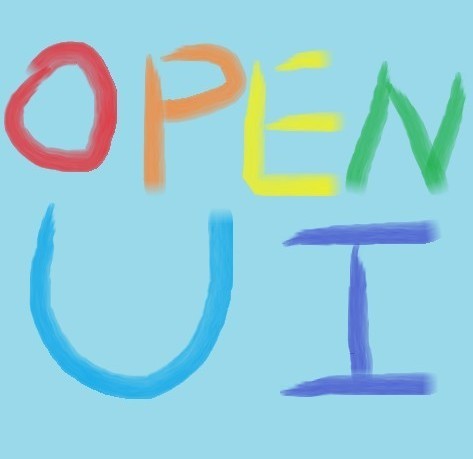 OPEN
UI